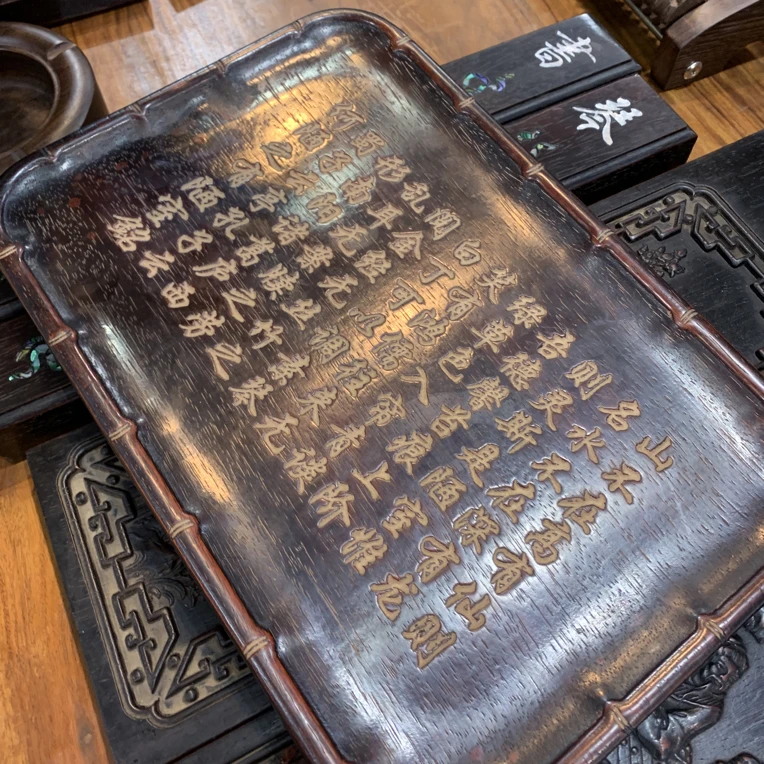 山不在高有仙則
名水不在深有龙
則灵斯是陋室惟
吾德馨苔痕上阶
綠草色入帘青談
笑有鴻儒往来无
白丁可以調素琴
閱金經无丝竹之
乱耳无案牘之劳
形南陽諸葛庐西
蜀子云亭孔子云
何陋之有陋室銘
書
琴